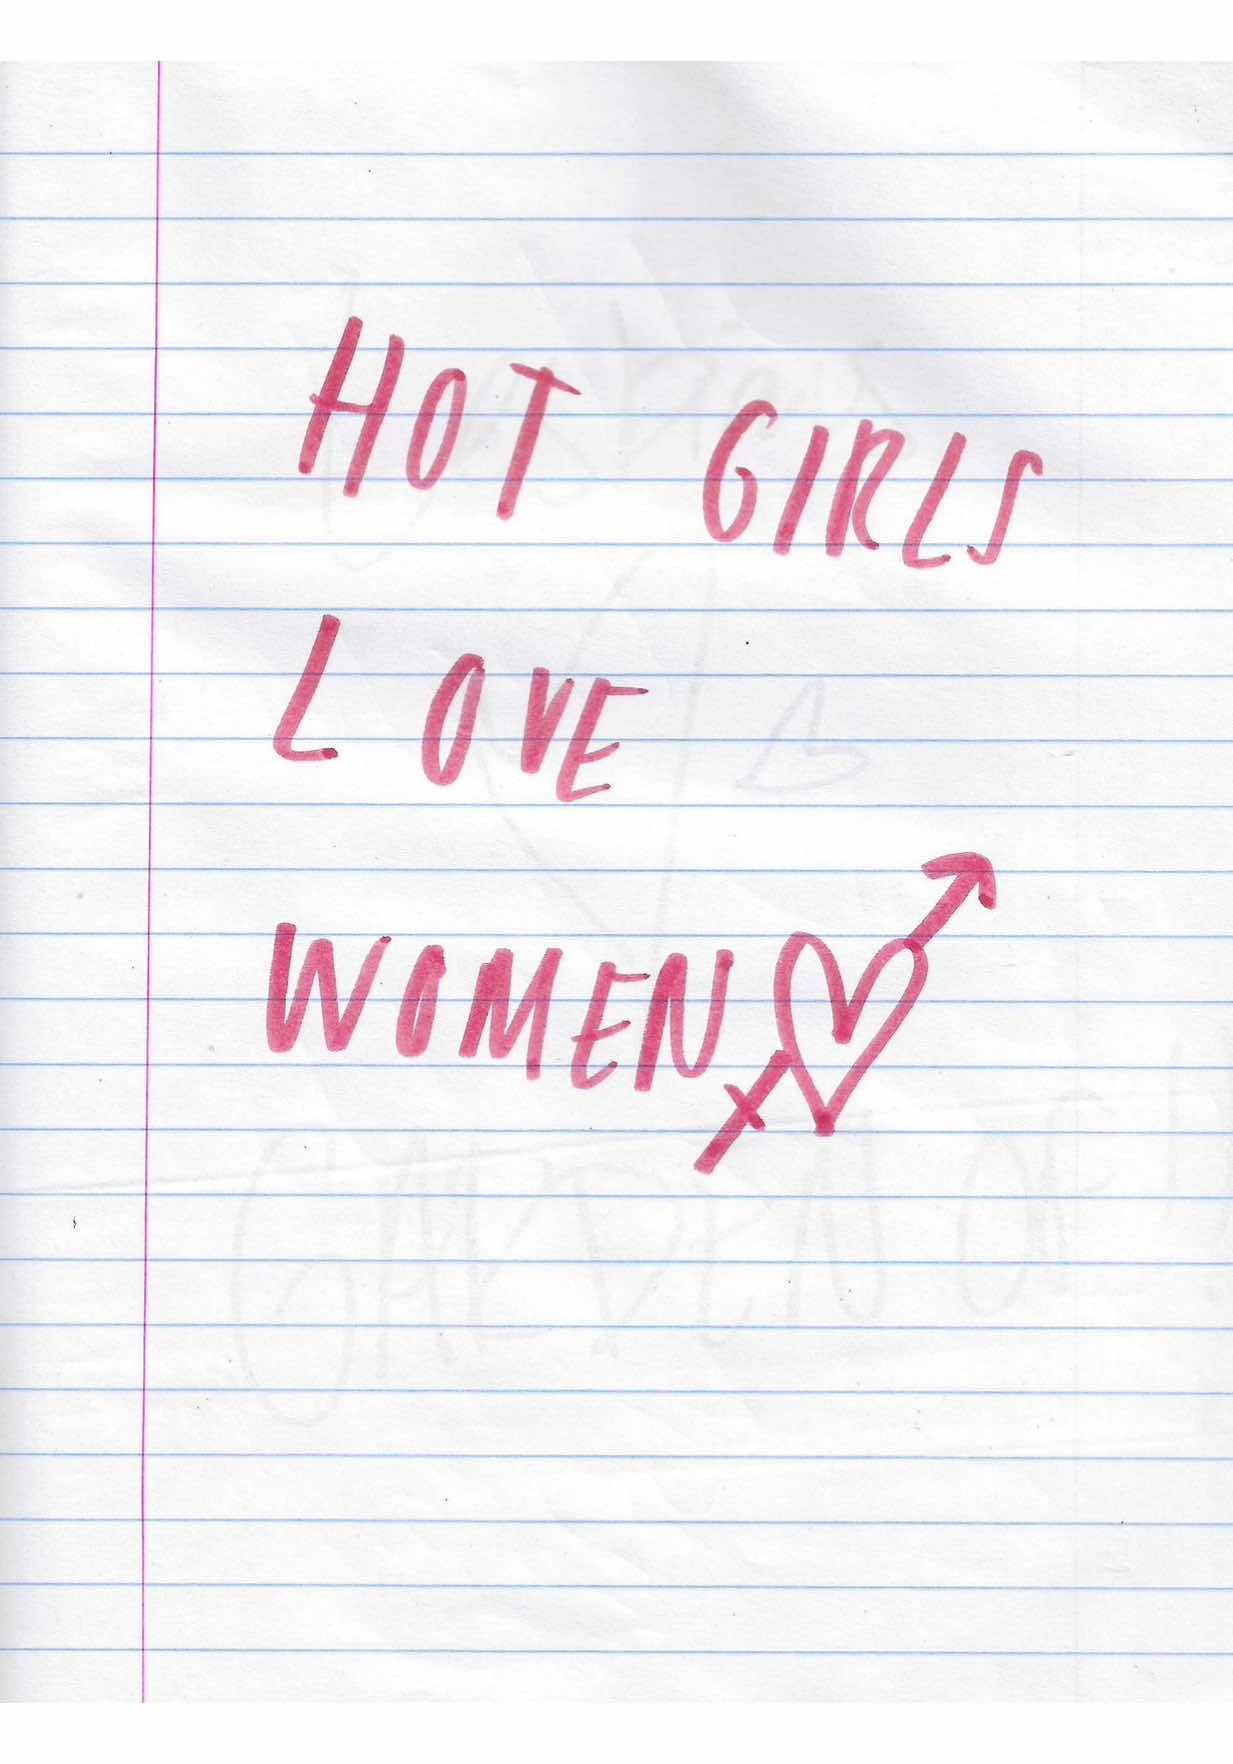 HOT GIRLS
LOVE
WOMEN